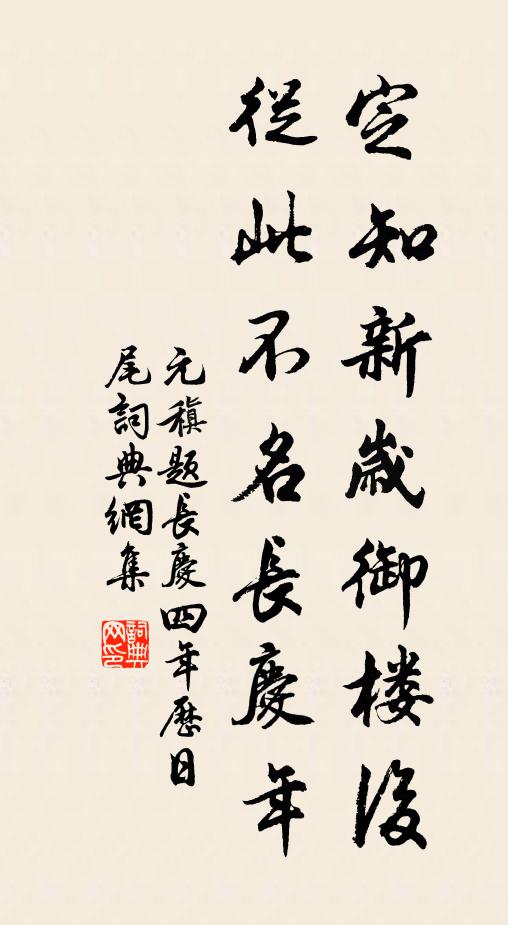 定知新歲御楼後
從此不名長慶年
元稹題長慶四年歷日
尾詞典網集
詞典网印